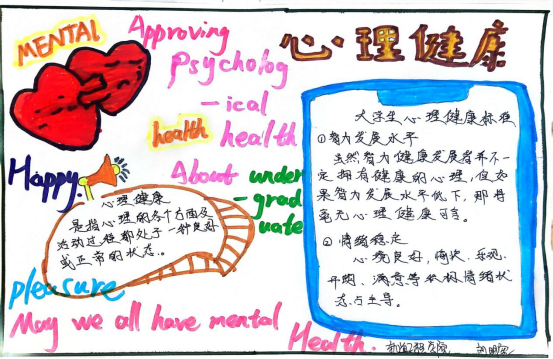 MENTAL
Approving
Psycholog
-ical
health health
心理健康
Happy.
About under
-grad
uate
心理健康
是指心理的各个方面及
活动过程都处于一种良好
或正常的状态。
pleasure
May we all have mental
Health.
大学生心理健康标准
①智力发展水平
虽然智力健康发展者并不一
定拥有健康的心理,但如
果智力发展水平低下,那将
毫无心理健康可言。
②情绪稳定
心境良好,愉快、乐观、
开朗、满意等积极情绪状
态占主导。